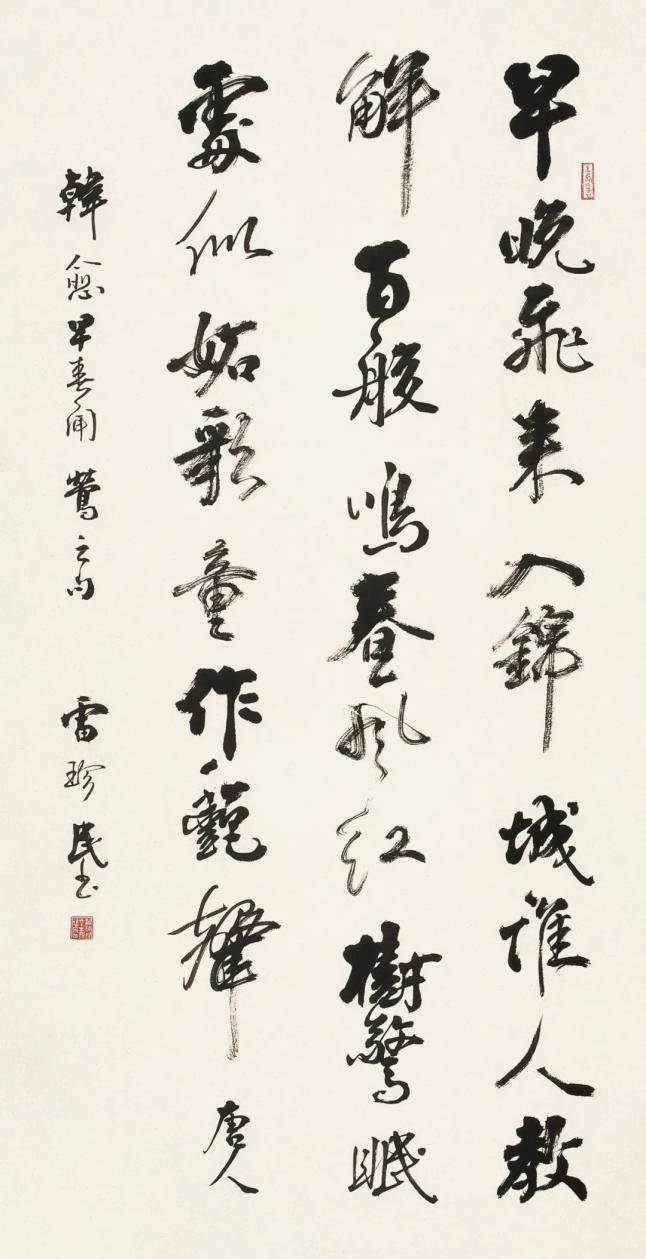 早晚飛来入錦城誰人教
解百般鳴春風红樹驚眠
處似妬歌童作艷聲 唐人
韓愈早春聞鶯之句 雷珍民书